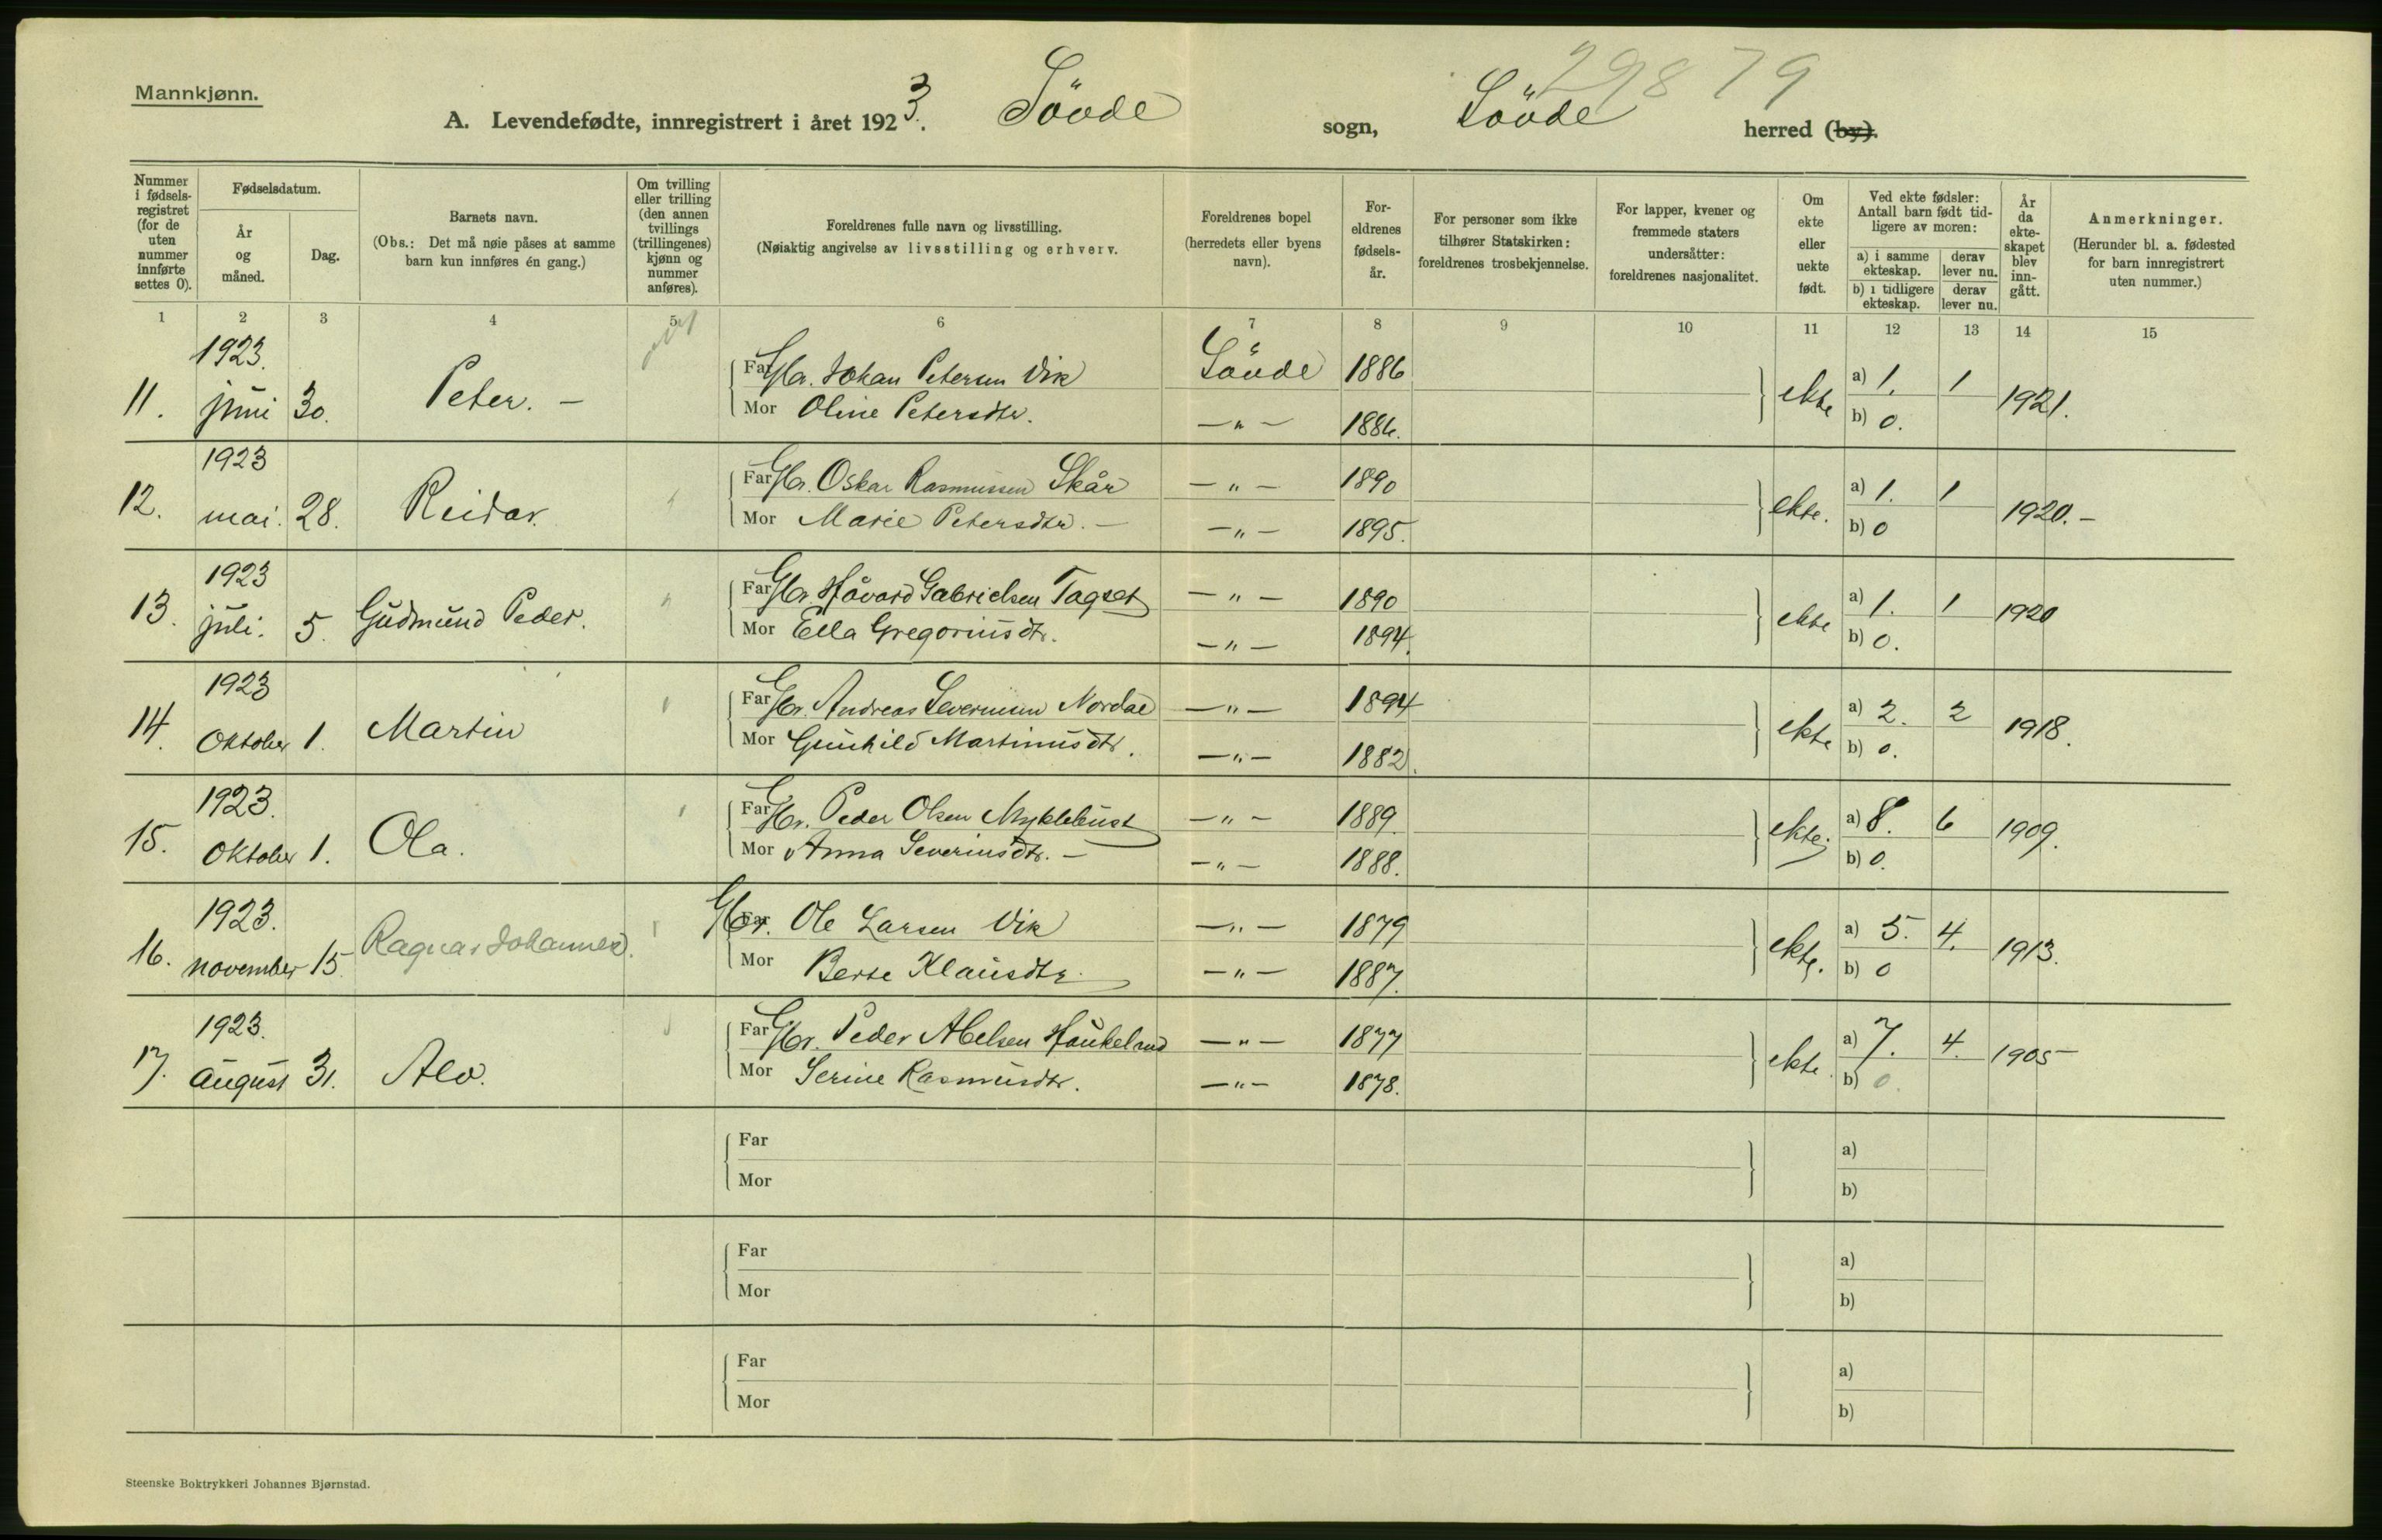 Mannkjønn.
29879
A. Levendefødte, innregistrert i året 1923. Søvde sogn, Søvde herred (by).
Nummer i fødselsregistret (for de uten nummer innførte settes 0).
Fødselsdatum.
År og måned.
Dag.
Barnets navn.
(Obs.: Det må nøie påses at samme barn kun innføres én gang.)
Om tvilling eller trilling (den annen tvillings (trillingenes) kjønn og nummer anføres).
Foreldrenes fulle navn og livsstilling.
(Nøiaktig angivelse av livsstilling og erhverv.
Foreldrenes bopel (herredets eller byens navn).
Foreldrenes fødselsår.
For personer som ikke tilhører Statskirken: foreldrenes trosbekjennelse.
For lapper, kvener og fremmede staters undersåtter: foreldrenes nasjonalitet.
Om ekte eller uekte født.
Ved ekte fødsler: Antall barn født tidligere av moren:
a) i samme ekteskap.
derav lever nu.
b) i tidligere ekteskap.
derav lever nu.
År da ekteskapet blev inngått.
Anmerkninger.
(Herunder bl. a. fødested for barn innregistrert uten nummer.)
1 2 3 4 5 6 7 8 9 10 11 12 13 14 15
11. 1923. juni 30. Peter. —
Far Gbr. Johan Petersen Vik Søvde 1886
Mor Oline Petersdtr. —„— 1886.
ekte a) 1. 1 b) 0. 1921.
12. 1923 mai. 28. Reidar.
Far Gbr. Oskar Rasmussen Skår —„— 1890
Mor Marie Petersdtr. — —„— 1895.
ekte. a) 1. 1 b) 0 1920. —
13. 1923 juli. 5. Gudmund Peder.
Far Gbr Håvard Gabrielsen Tagset —„— 1890
Mor Ella Gregoriusdtr. —„— 1894.
ekte a) 1. 1 b) 0. 1920
14. 1923 Oktober 1. Martin
Far Gbr. Andreas Severinsen Nordal —„— 1894
Mor Gunhild Martinusdtr. —„— 1882.
ekte a) 2. 2 b) 0. 1918.
15. 1923. Oktober 1. Ola.
Far Gbr. Peder Olsen Myklebust —„— 1889.
Mor Anna Severinsdtr. — —„— 1888.
ekte. a) 8. 6 b) 0. 1909.
16. 1923. november 15. Ragnar Johannes.
Far Gbr. Ole Larsen Vik —„— 1879
Mor Berte Klausdtr. —„— 1887.
ekte. a) 5. 4. b) 0 1913.
17. 1923. august 31. Alv.
Far Gbr. Peder Abelsen Haukeland —„— 1877
Mor Serine Rasmusdtr. —„— 1878.
ekte. a) 7. 4. b) 0. 1905
Far a)
Mor b)
Far a)
Mor b)
Far a)
Mor b)
Steenske Boktrykkeri Johannes Bjørnstad.